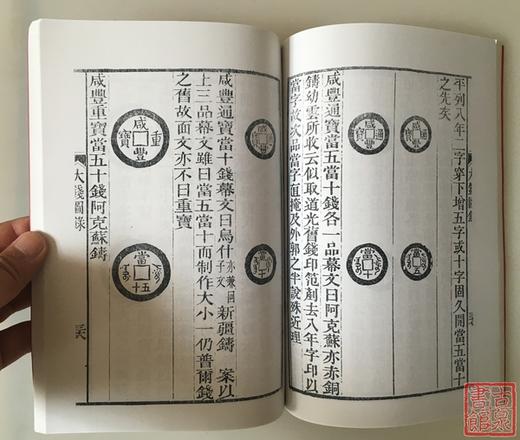 平列八年二字穿下增五字或十字固久開當五當十
之先矣
咸豐通寶
當五
咸豐通寶
當十
咸豐通寶當五當十錢各一品幕文曰阿克蘇亦赤銅
鑄幼雲所收云似取道光舊錢印笵剜去八年字印以
當字故次品當字直掩及外郭之半說殊近理
咸豐通寶當十錢幕文曰烏什亦兼回子文新疆鑄 案以
上三品幕文雖曰當五當十而制作大小一仍普爾錢
之舊故面文亦不曰重寶
咸豐重寶
當五十
咸豐重寶當五十錢阿克蘇鑄
大錢圖錄
古泉書館